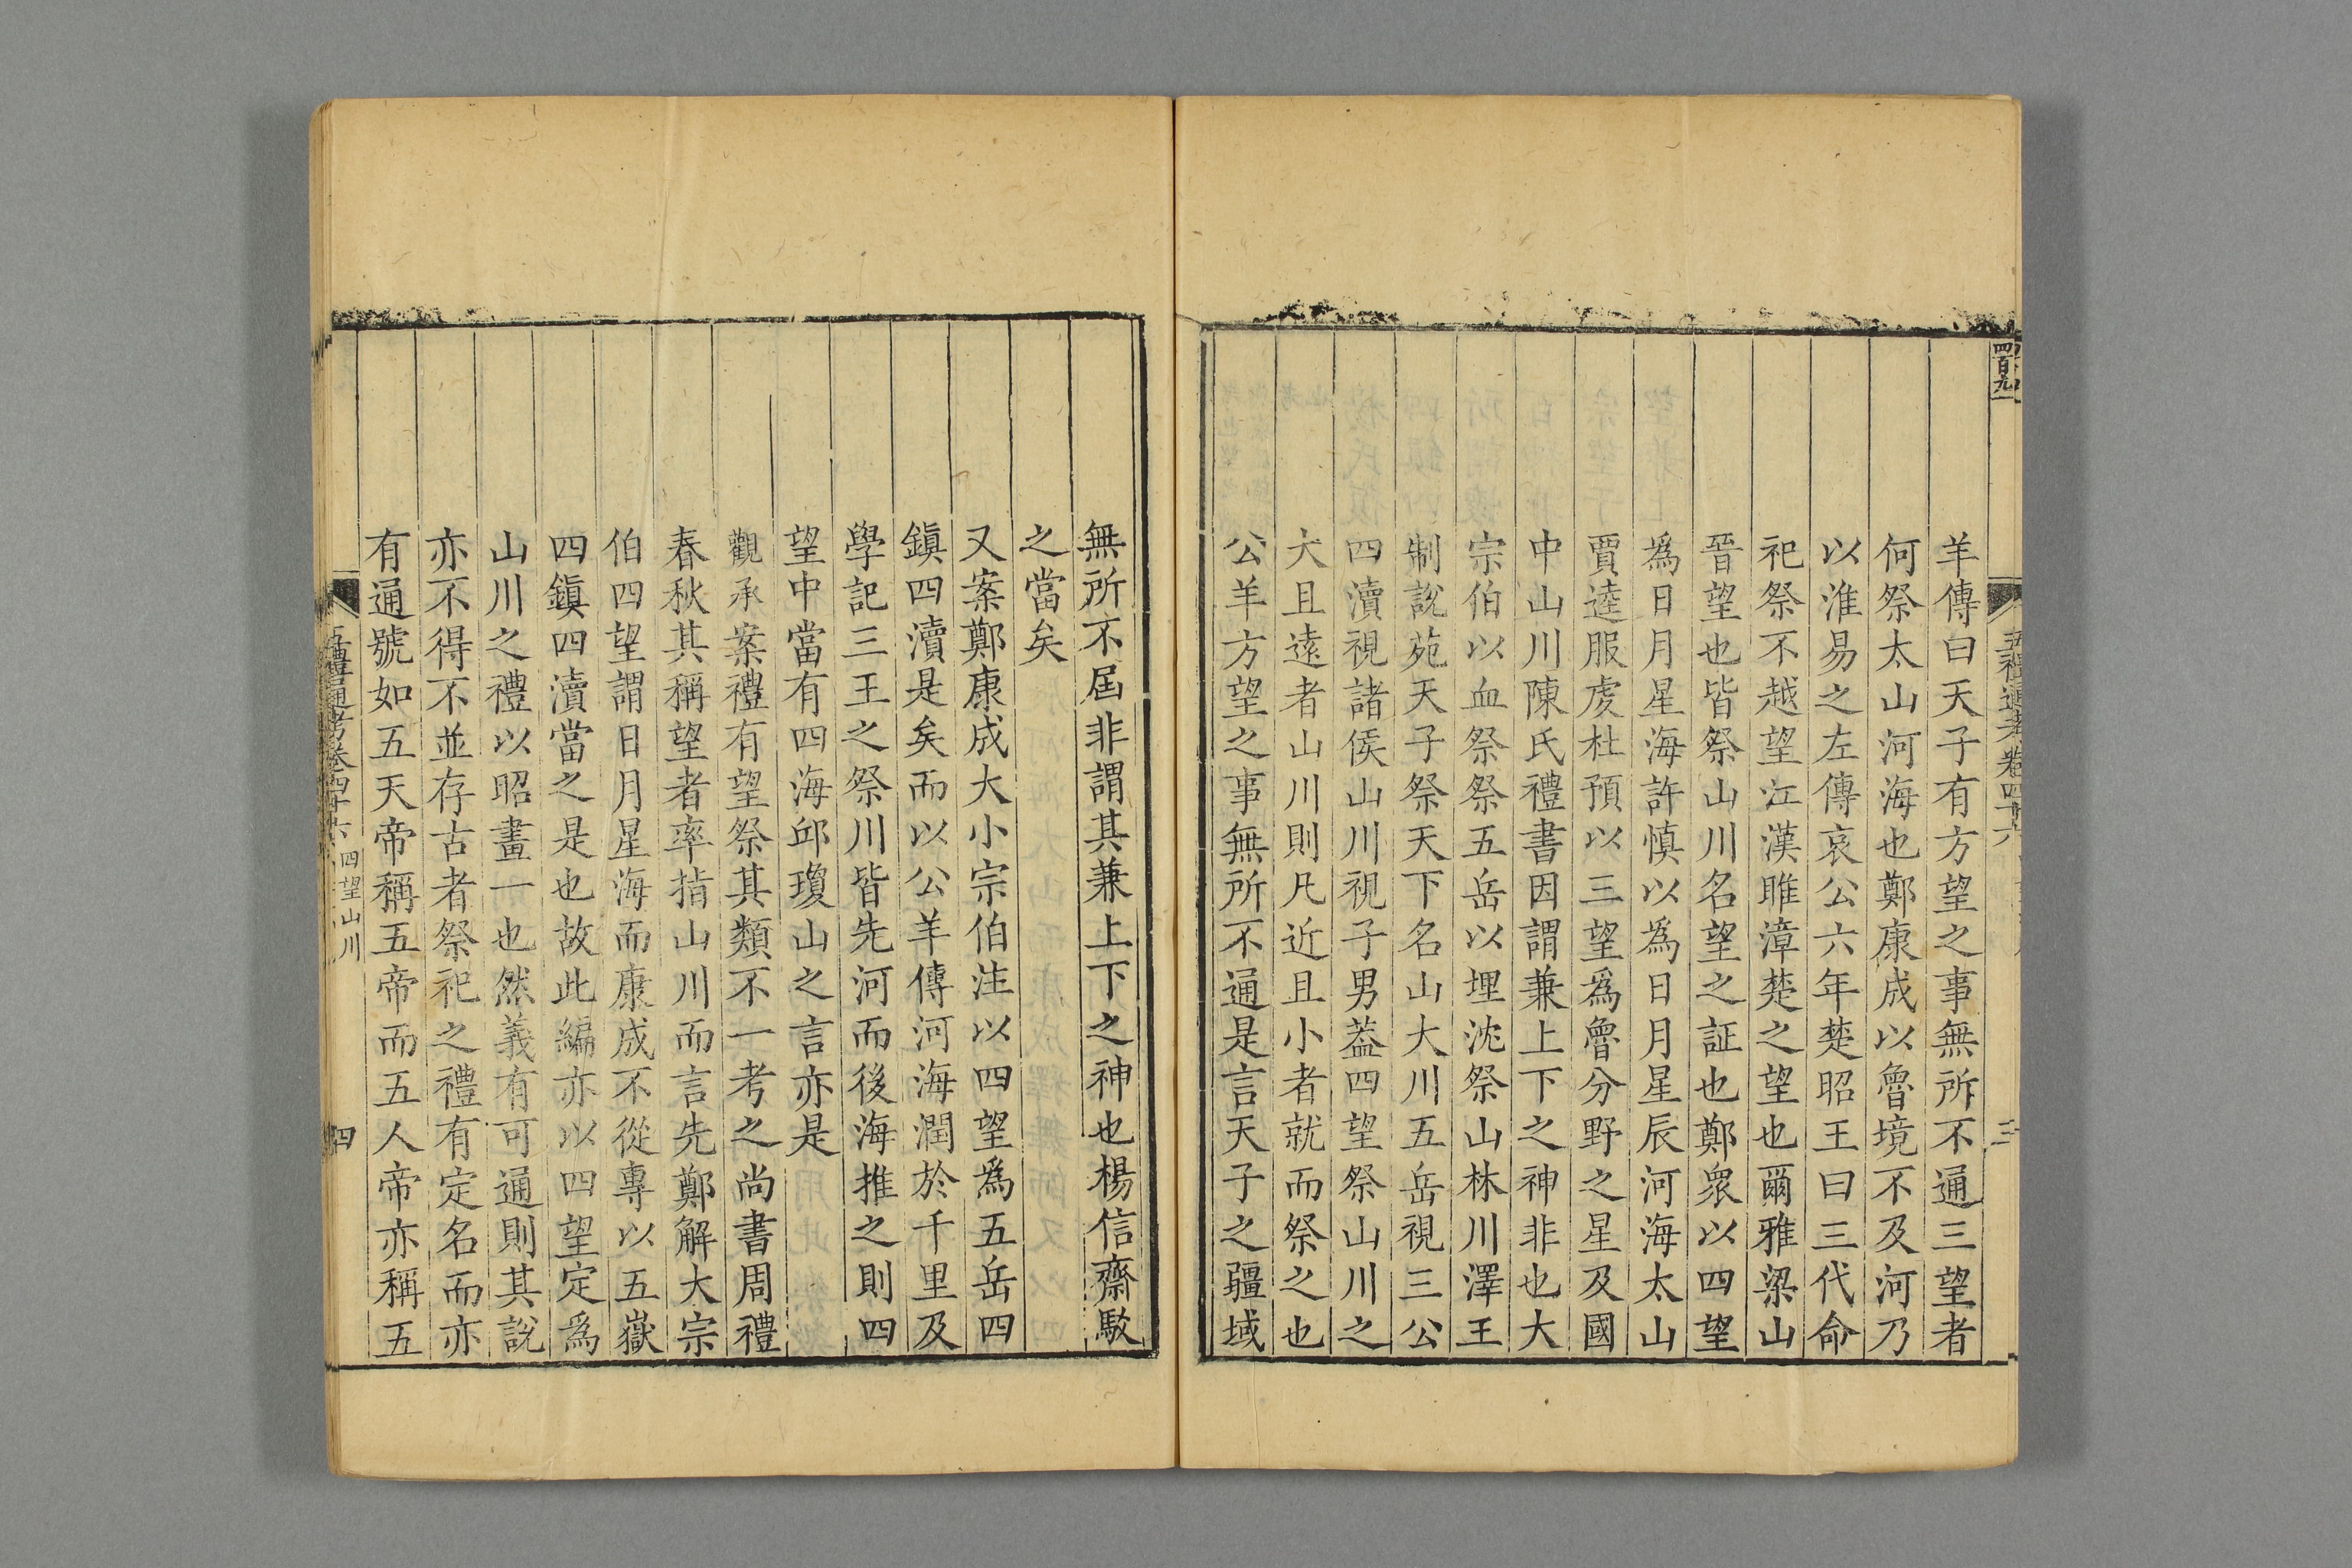 羊傳曰天子有方望之事無所不通三望者
何祭太山河海也鄭康成以魯境不及河乃
以淮易之左傳哀公六年楚昭王曰三代命
祀祭不越望江漢雎漳楚之望也爾雅梁山
晉望也皆祭山川名望之証也鄭衆以四望
爲日月星海許慎以爲日月星辰河海太山
賈逵服虔杜預以三望爲魯分野之星及國
中山川陳氏禮書因謂兼上下之神非也大
宗伯以血祭祭五岳以埋沈祭山林川澤王
制說苑天子祭天下名山大川五岳視三公
四瀆視諸侯山川視子男葢四望祭山川之
大且遠者山川則凡近且小者就而祭之也
公羊方望之事無所不通是言天子之疆域
無所不屆非謂其兼上下之神也楊信齋駮
之當矣
又案鄭康成大小宗伯注以四望爲五岳四
鎭四瀆是矣而以公羊傳河海潤於千里及
學記三王之祭川皆先河而後海推之則四
望中當有四海邱瓊山之言亦是
觀承案禮有望祭其類不一考之尚書周禮
春秋其稱望者率指山川而言先鄭解大宗
伯四望謂日月星海而康成不從專以五嶽
四鎭四瀆當之是也故此編亦以四望定爲
山川之禮以昭畫一也然義有可通則其說
亦不得不並存古者祭祀之禮有定名而亦
有通號如五天帝稱五帝而五人帝亦稱五
五禮通考卷四十六 四望山川
四